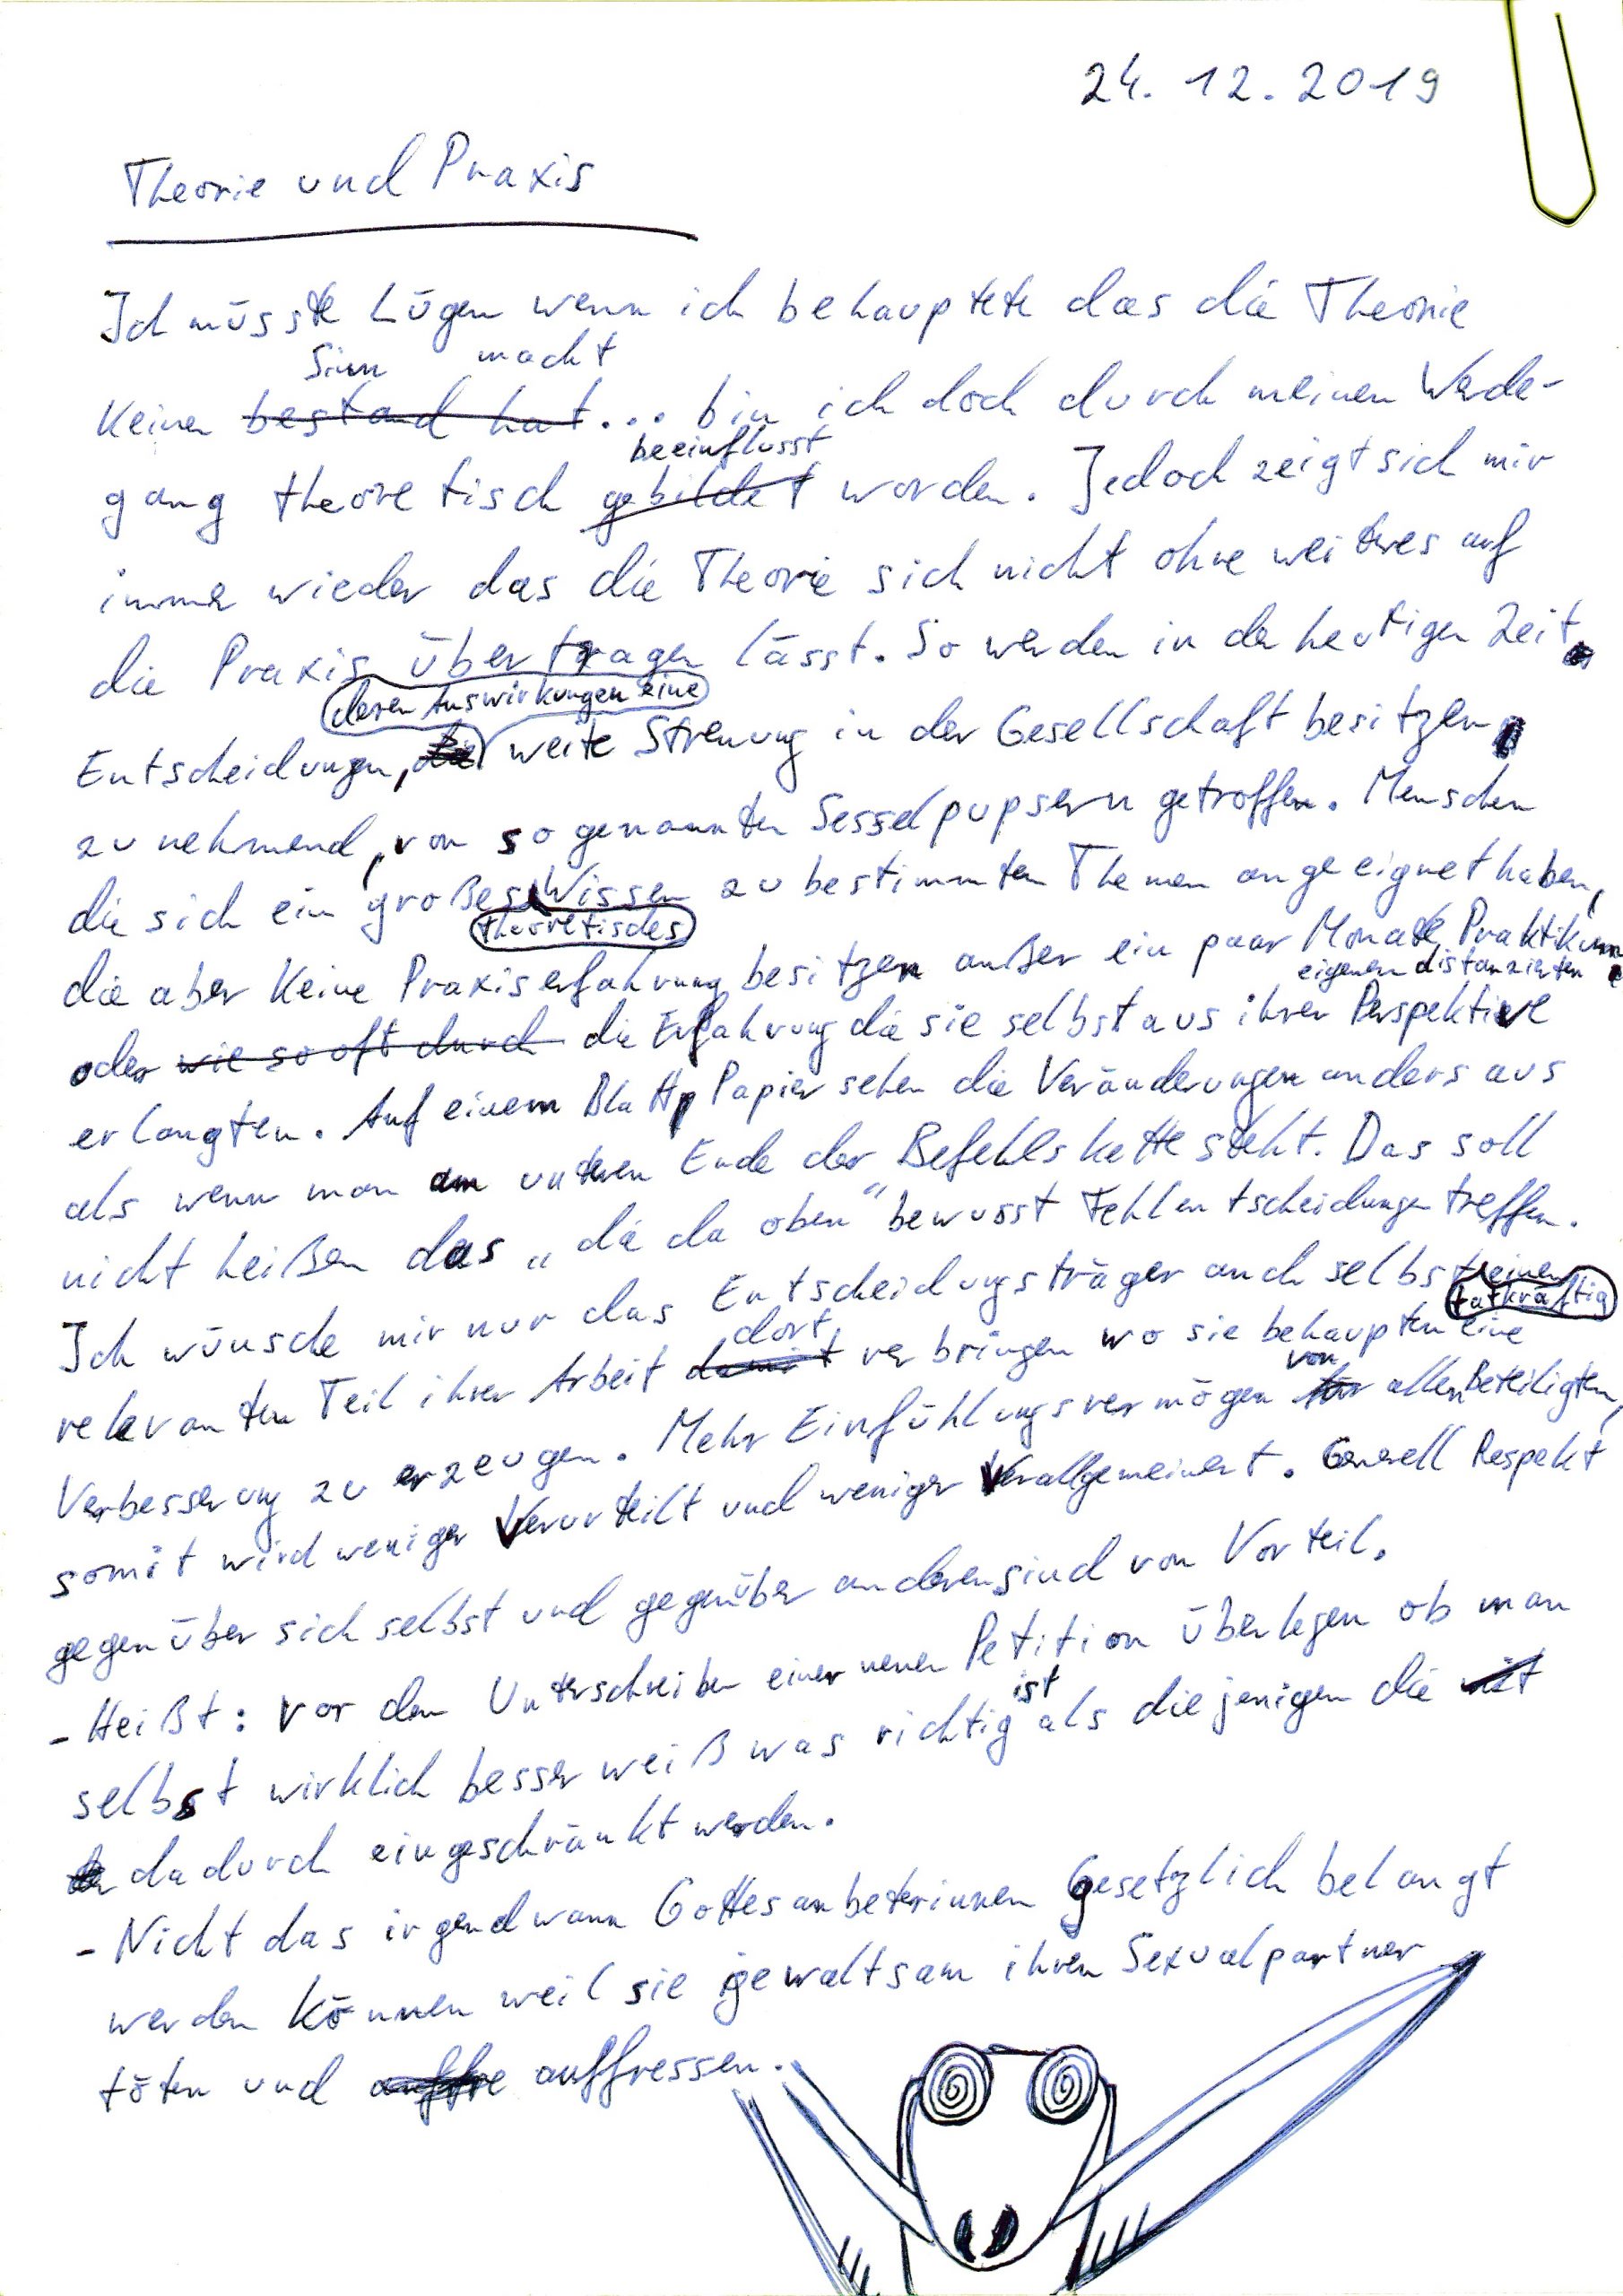 24.12.2019
Theorie und Praxis
Ich müsste Lügen wenn ich behauptete das die Theorie
Sinn macht
Keinen bestand hat... bin ich doch durch meinen Werde-
beeinflusst
gang theoretisch gebildet worden. Jedoch zeigt sich mir
immer wieder das die Theorie sich nicht ohne weiteres auf
die Praxis übertragen lässt. So werden in der heutigen Zeit
deren Auswirkungen eine
Entscheidungen, die weite Streuung in der Gesellschaft besitzen,
zunehmend, von sogenannten Sesselpupsern getroffen. Menschen
die sich ein großes Wissen zu bestimmten Themen angeeignet haben,
theoretisches
die aber Keine Praxiserfahrung besitzen außer ein paar Monate Praktikum
eigenen distanzierten
oder wie so oft durch die Erfahrung die sie selbst aus ihrer Perspektive
erlangten. Auf einem Blatt Papier sehen die Veränderungen anders aus
als wenn man am unteren Ende der Befehlskette steht. Das soll
nicht heißen das "die da oben" bewusst Fehlentscheidungen treffen.
Ich wünsche mir nur das Entscheidungsträger auch selbst einen
tatkräftig
dort
relevanten Teil ihrer Arbeit damit verbringen wo sie behaupten eine
von
Verbesserung zu erzeugen. Mehr Einfühlungsvermögen für allen Beteiligten,
somit wird weniger Verurteilt und weniger Verallgemeinert. Generell Respekt
gegenüber sich selbst und gegenüber anderen sind von Vorteil.
- Heißt: vor dem Unterschreiben einer neuen Petition überlegen ob man
ist
selbst wirklich besser weiß was richtig als diejenigen die
dadurch eingeschränkt werden.
- Nicht das irgendwann Gottesanbeterinnen gesetzlich belangt
werden können weil sie gewaltsam ihren Sexualpartner
töten und auffre auffressen.